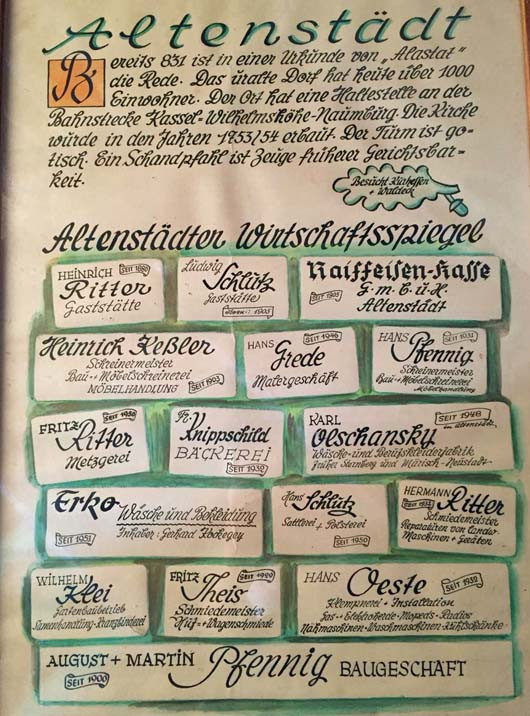 Altenstädt
Bereits 831 ist in einer Urkunde von „Alastat"
die Rede. Das uralte Dorf hat heute über 1000
Einwohner. Der Ort hat eine Haltestelle an der
Bahnstrecke Kassel-Wilhelmshöhe-Naumburg. Die Kirche
wurde in den Jahren 1753/54 erbaut. Der Turm ist go-
tisch. Ein Schandpfahl ist Zeuge früherer Gerichtsbar-
keit.
Besucht Kurhessen
+ Waldeck
Altenstädter Wirtschaftsspiegel
HEINRICH SEIT 1880
Ritter
Gaststätte
Ludwig
Schlutz
Gaststätte
1905
Raiffeisen-Kasse
SEIT 1905 G·m·b·u·H·
Altenstädt
Heinrich Keßler
Schreinermeister
Bau- + Möbelschreinerei
MÖBELHANDLUNG SEIT 1903
HANS SEIT 1946
Grede
Malergeschäft
HANS SEIT 1931
Pfennig
Schreinermeister
Bau- + Möbelschreinerei
Möbelhandlung
FRITZ SEIT 1950
Ritter
Metzgerei
Fr. Knippschild
BÄCKEREI
SEIT 1932
KARL SEIT 1948
in Altenstädt
Olschansky
Wäsche- und Berufskleiderfabrik
früher Sternberg und Mährisch-Neustadt
Erko Wäsche und Bekleidung
SEIT 1951 Inhaber: Gerhard
Hans Schlutz
Sattlerei + Polsterei
SEIT 1950
HERMANN
Ritter
SEIT
Schmiedemeister
Reparaturen von Landw.
Maschinen + Geräten
WILHELM
Klei
Gartenbaubetrieb
Samenhandlung-Kranzbinderei
FRITZ SEIT
Theis
Schmiedemeister
Huf- + Wagenschmiede
HANS SEIT 1932
Oeste
Klempnerei + Installation
Gas- + Elektroherde - Mopeds - Radios
Nähmaschinen-Waschmaschinen-Kühlschränke
AUGUST + MARTIN Pfennig BAUGESCHÄFT
SEIT 1900